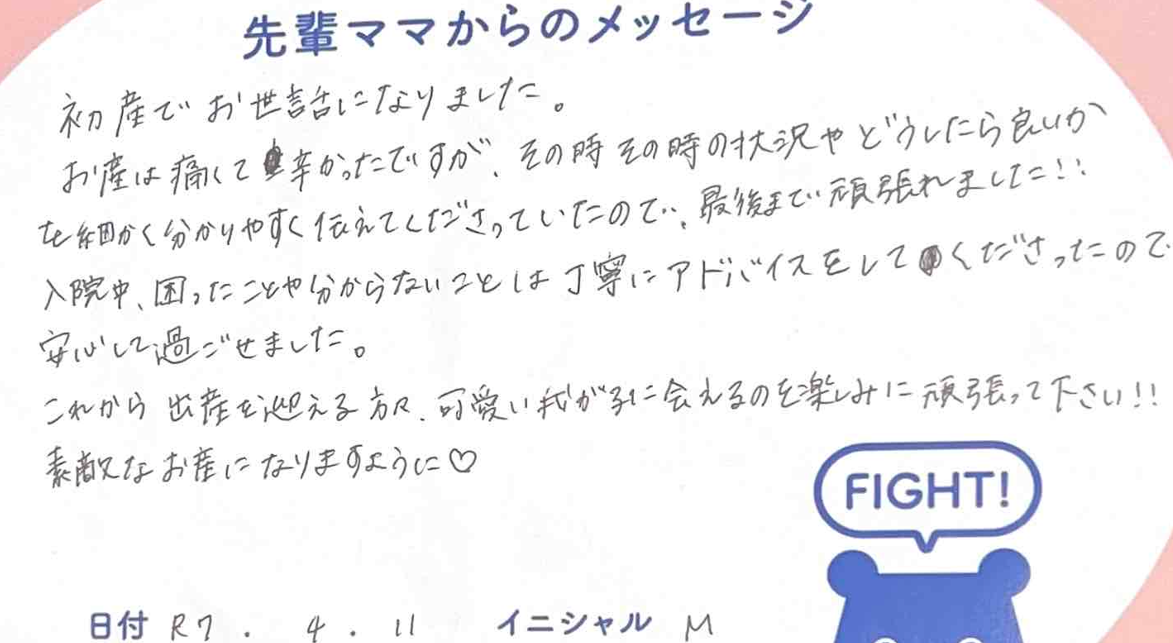 先輩ママからのメッセージ
初産でお世話になりました。
お産は痛くて辛かったですが、その時その時の状況やどうしたら良いか
を細かく分かりやすく伝えてくださっていたので、最後まで頑張れました!!
入院中、困ったことや分からないことは丁寧にアドバイスをしてくださったので
安心して過ごせました。
これから出産を迎える方々、可愛い我が子に会えるのを楽しみに頑張って下さい!!
素敵なお産になりますように♡
FIGHT!
日付 R7. 4. 11 イニシャル M